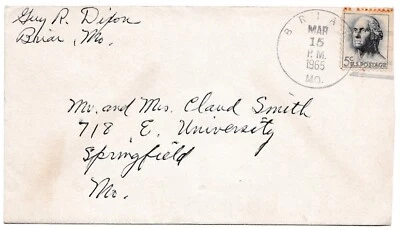 Guy R. Dixon
Briar, Mo.
BRIAR
MAR
15
P.M.
1965
MO.
5¢ U.S. POSTAGE
Mr. and Mrs. Claud Smith
718 E. University
Springfield
Mo.